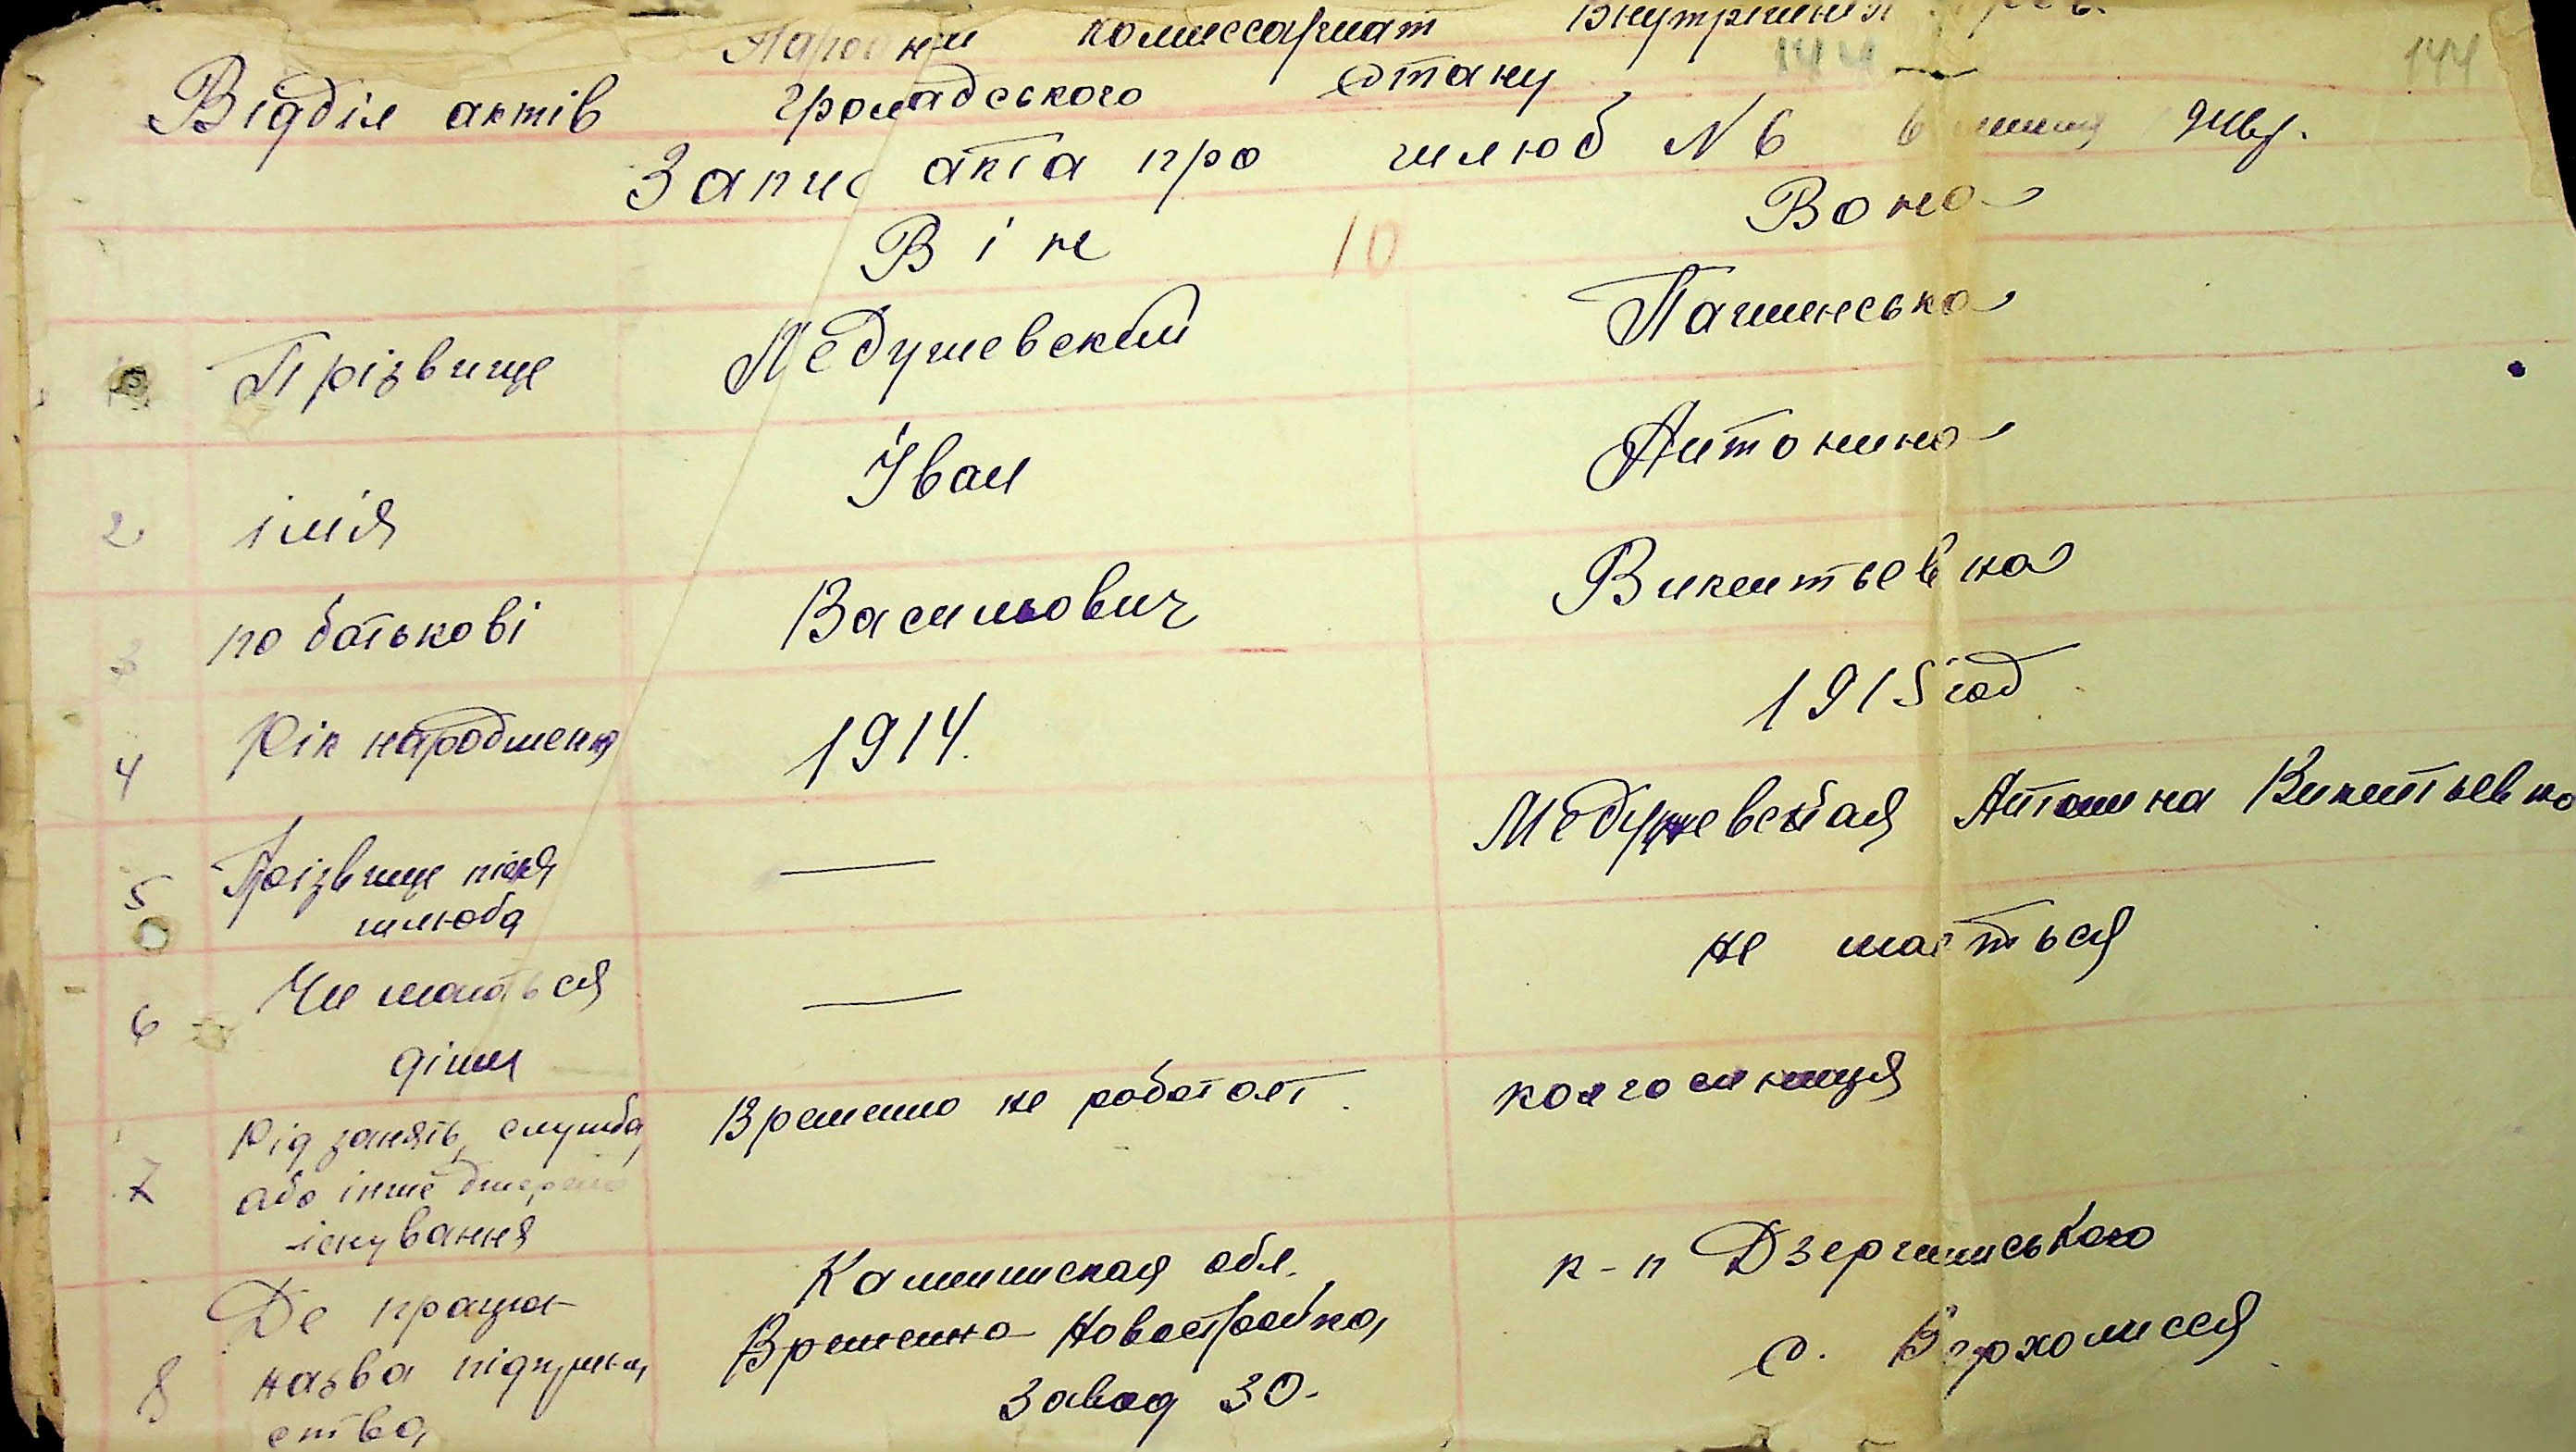 Народний комиссариат Внутрішніх
144
Відділ актів громадського стану
Запис акта про шлюб N 6
Він 10 Вона
Прізвище Медушевский Пашинська
2 імія Іван Антонина
3 по батькові Васильович Викентьевна
4 Рік народження 1914. 1915 год
5 Прізвище після шлюба — Медушевская Антонина Викентьевна
6 Чи мають ся діти — не мается
7 Рід занять, служба, Временно не работает. колгоспница
або інше джерело
існування
8 Де працює Калининская обл. к-п Дзержинського
назва підприєм Временно Новостройка, с. Верхолисся
ства, Завод 30.